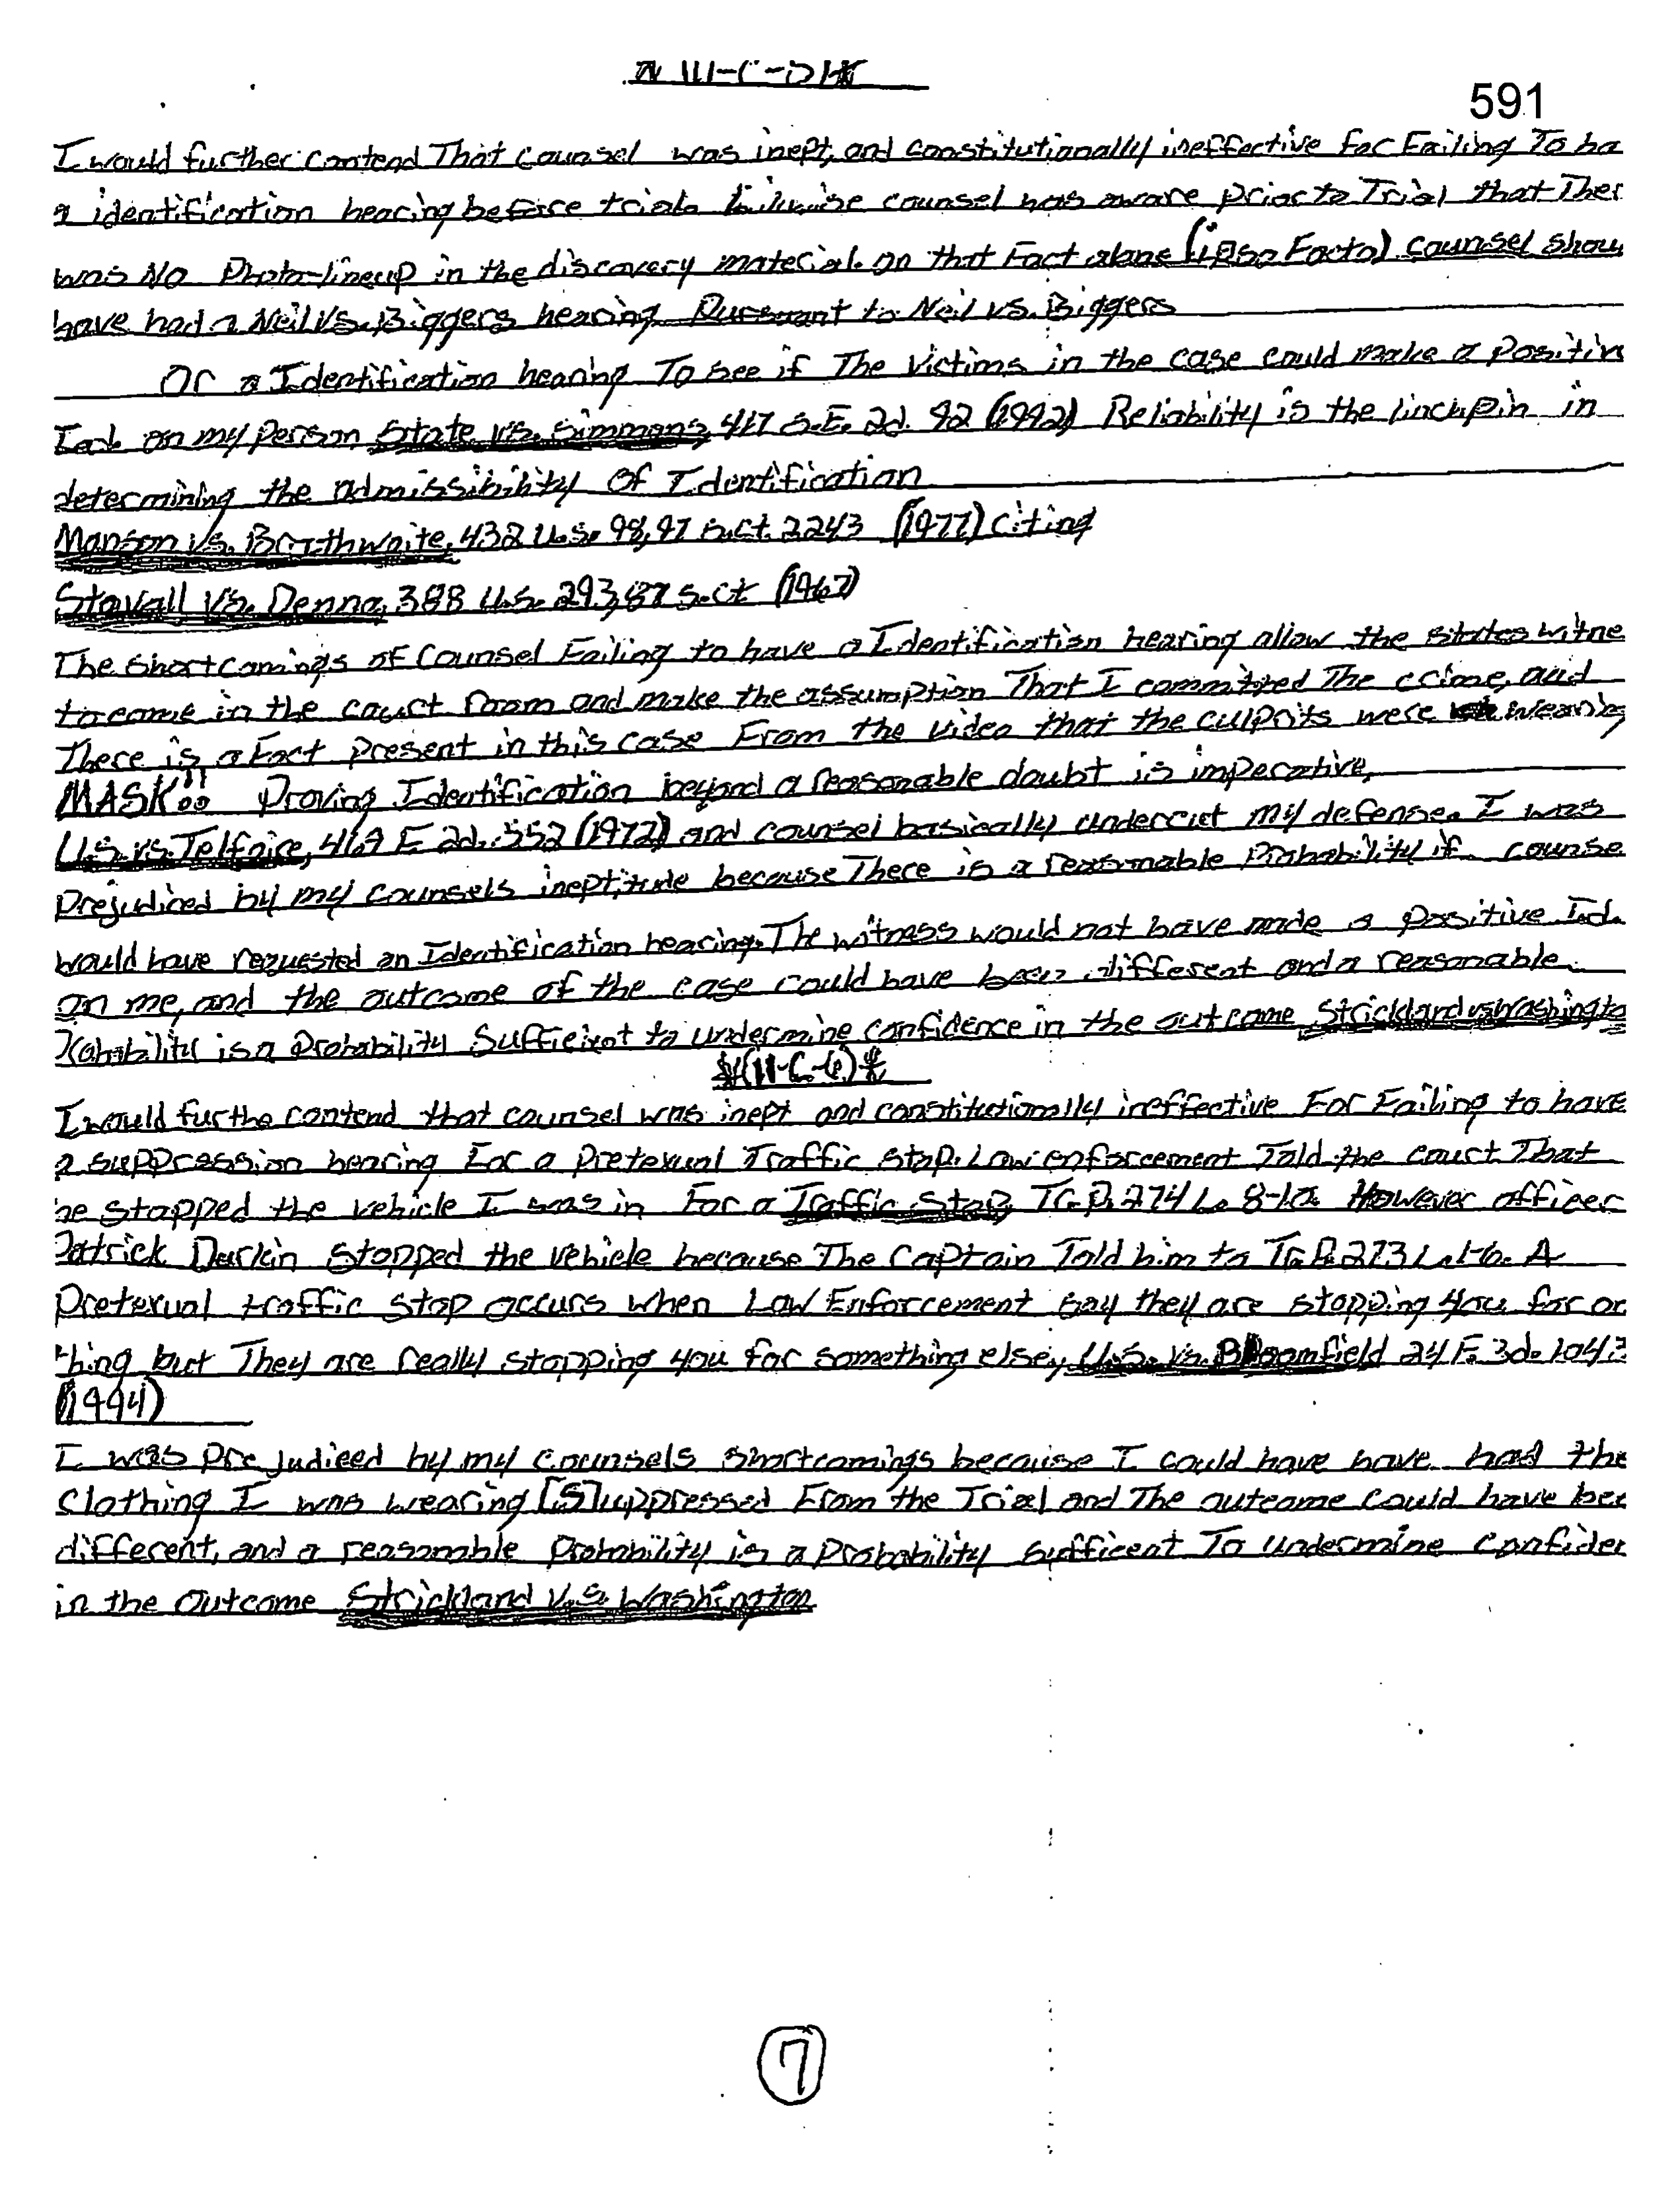 591
I would further contend That counsel was inept, and constitutionally ineffective For Failing To ha
a identification hearing before trial. Likewise counsel was aware prior to Trial that Ther
was No Photo-lineup in the discovery material. on that Fact alone (ipso Facto) counsel shou
have had a Neil vs. Biggers hearing Pursuant to Neil vs. Biggers
Or a Identification hearing To see if The Victims in the case could make a Positive
I.d. on my person State vs. Simmons, 417 S.E. 2d. 92 (1992) Reliability is the linchpin in
determining the admissibility Of Identification
Manson vs. Brathwaite, 432 U.S. 98, 97 S.ct. 2243 (1977) citing
Stovall vs. Denno, 388 U.S. 293, 87 S.ct (1967)
The shortcomings of Counsel Failing to have a Identification hearing allow the states witne
to come in the court room and make the assumption That I committed The crime, and
There is a Fact present in this case From the video that the culprits were wearing
MASK!! Proving Identification beyond a reasonable doubt is imperative,
U.S. vs. Telfaire, 469 F. 2d. 552 (1972) and counsel basically undercut my defense. I was
prejudiced by my counsels ineptitude because There is a reasonable Probability if counse
would have requested an Identification hearing. The witness would not have made a positive I.d.
on me, and the outcome of the case could have been different and a reasonable
Probability is a Probability Sufficient to undermine confidence in the outcome Strickland vs Washingto
*(11-C-6)*
I would furthe contend that counsel was inept and constitutionally ineffective For Failing to have
a suppression hearing For a Pretexual Traffic stop. Law enforcement Told the court That
he stopped the vehicle I was in For a Traffic Stop, Tr. P. 274 L. 8-10. However officer
Patrick Durkin stopped the vehicle because The Captain Told him to Tr. P. 273 L. 1-6. A
Pretexual traffic stop occurs when Law Enforcement say they are stopping you for on
thing but They are really stopping you for something else, U.S. vs. Bloomfield 24 F. 3d. 1043
(1994)
I was prejudiced by my counsels shortcomings because I could have have had the
clothing I was wearing [S]uppressed From the Trial and The outcome could have bee
different, and a reasonable Probability is a Probability sufficent To undermine confiden
in the outcome Strickland V.S. Washington
7